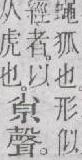 蠅狐也。形似
經者。以
从虎也。
𡭴聲。